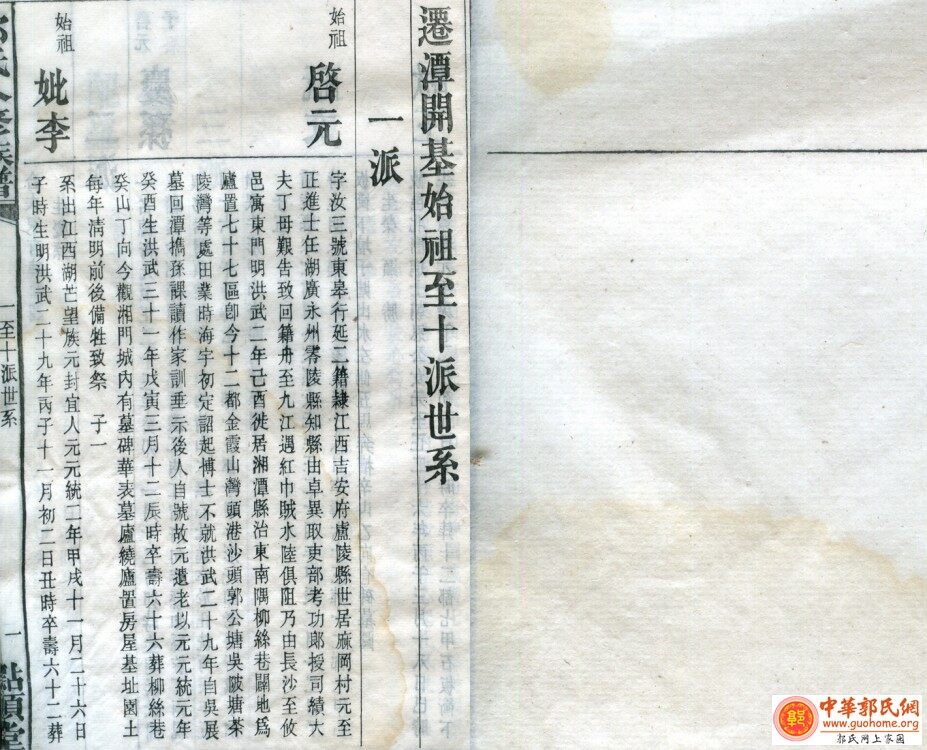 遷潭開基始祖至十派世系
一派
始祖
啓元
字汝三號東皋行延二籍隷江西吉安府廬陵縣世居麻岡村元至
正進士任湖廣永州零陵縣知縣由卓異取吏部考功郎授司績大
夫丁母艱告致回籍舟至九江遇紅巾賊水陸俱阻乃由長沙至攸
邑寓東門明洪武二年己酉徙居湘潭縣治東南隅柳絲巷闢地爲
廬置七十七區卽今十二都金霞山灣頭港沙頭郭公塘吳陂塘茶
陵灣等處田業時海宇初定詔起博士不就洪武二十九年自吳展
墓回潭撝孫課讀作家訓垂示後人自號故元遺老以元元統元年
癸酉生洪武三十一年戊寅三月十二辰時卒壽六十六葬柳絲巷
癸山丁向今觀湘門城內有墓碑華表墓廬繞廬置房屋基址園土
每年淸明前後備牲致祭 子一
始祖
妣李
系出江西湖芒望族元封宜人元元統二年甲戌十一月二十六日
子時生明洪武二十九年丙子十一月初二日丑時卒壽六十二葬
氏八修族譜
一至十派世系
一
點頭堂
中華郭氏網
www.guohome.org
郭氏网上家園